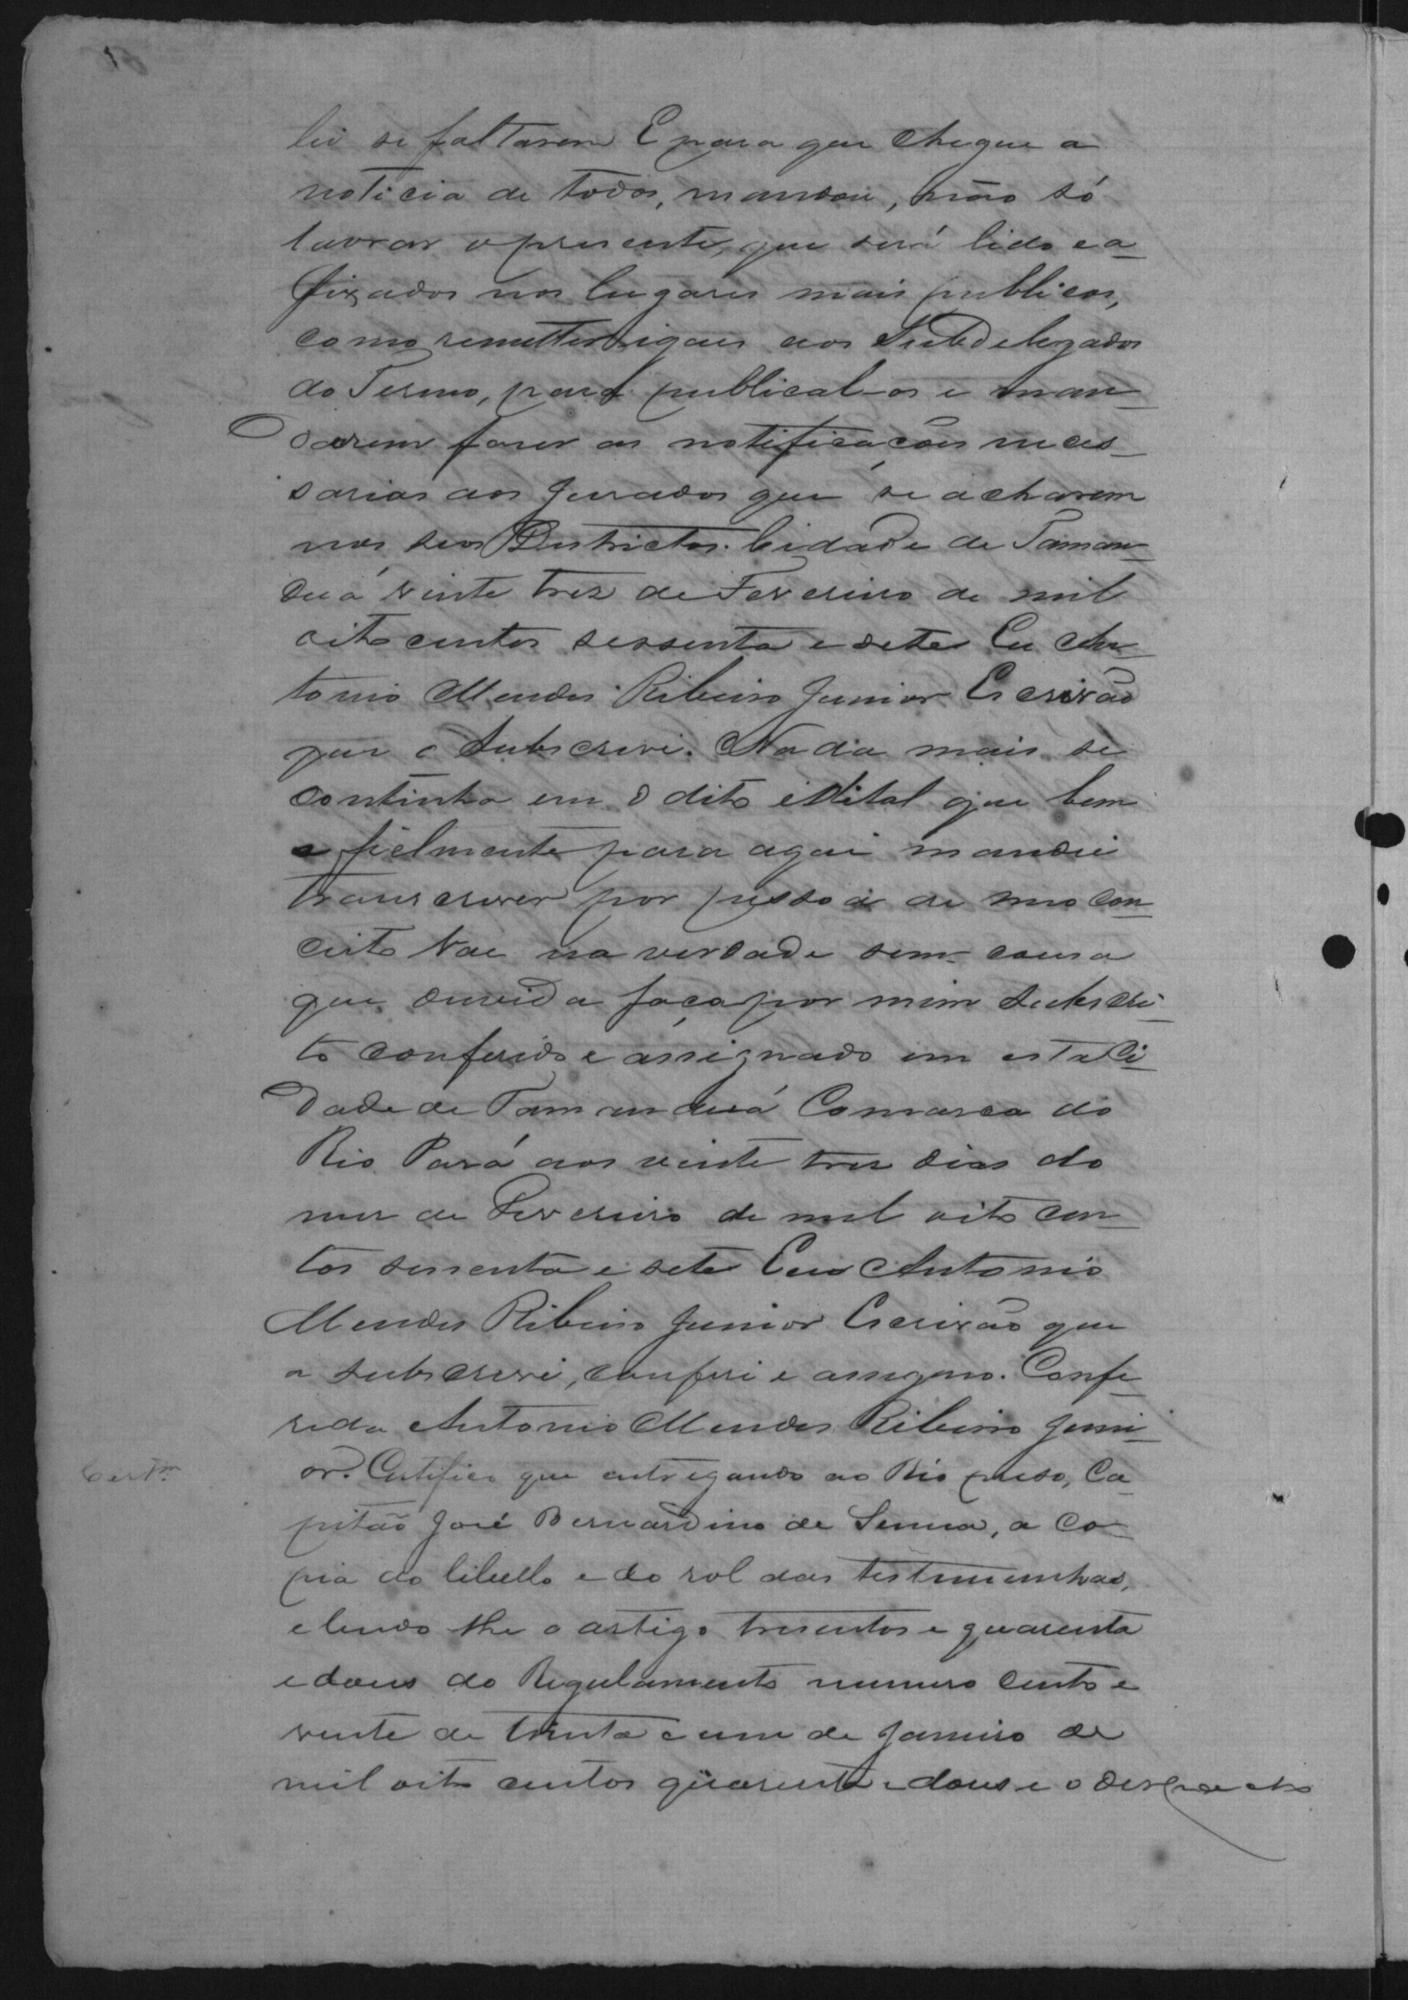 lei se faltarem E para que chegue a
noticia de todos, mandei, não só
lavrar o presente, que será lido e a-
fixados nos lugares mais publicos,
como remetter iguais aos SubDelegados
do Termo, para publical-os e man-
darem faser as notificações neces-
sarias aos Jurados que se acharem
nos seos Districtos. Cidade de Taman-
duá vinte tres de Fevereiro de mil
oito centos sessenta e sete Eu An-
tonio Mendes Ribeiro Junior Escrivão
que o Subscrevi. Nada mais se
continha em o dito edital que bem
e fielmente para aqui mandei
transcrever por pessoa de meo con-
ceito Vae na verdade sem cousa
que duvida faça por mim subscri-
to conferido e assignado em esta Ci-
dade de Tamanduá Comarca do
Rio Pará aos vinte tres dias do
mes de Fevereiro de mil oito cen-
tos sessenta e sete Eeu Antonio
Mendes Ribeiro Junior Escrivão que
a subscrevi, conferi e assigno. Confe-
rida Antonio Mendes Ribeiro Juni-
Certm or. Certifico que entregando ao Réo preso, Ca-
pitão José Bernardino de Senna, a co-
pia do libello e do rol das testemunhas,
e lendo lhe o artigo tresentos e quarenta
e dous do Regulamento numero cento e
vente de trinta e um de Janeiro de
mil oito centos quarenta e dous e o despacho